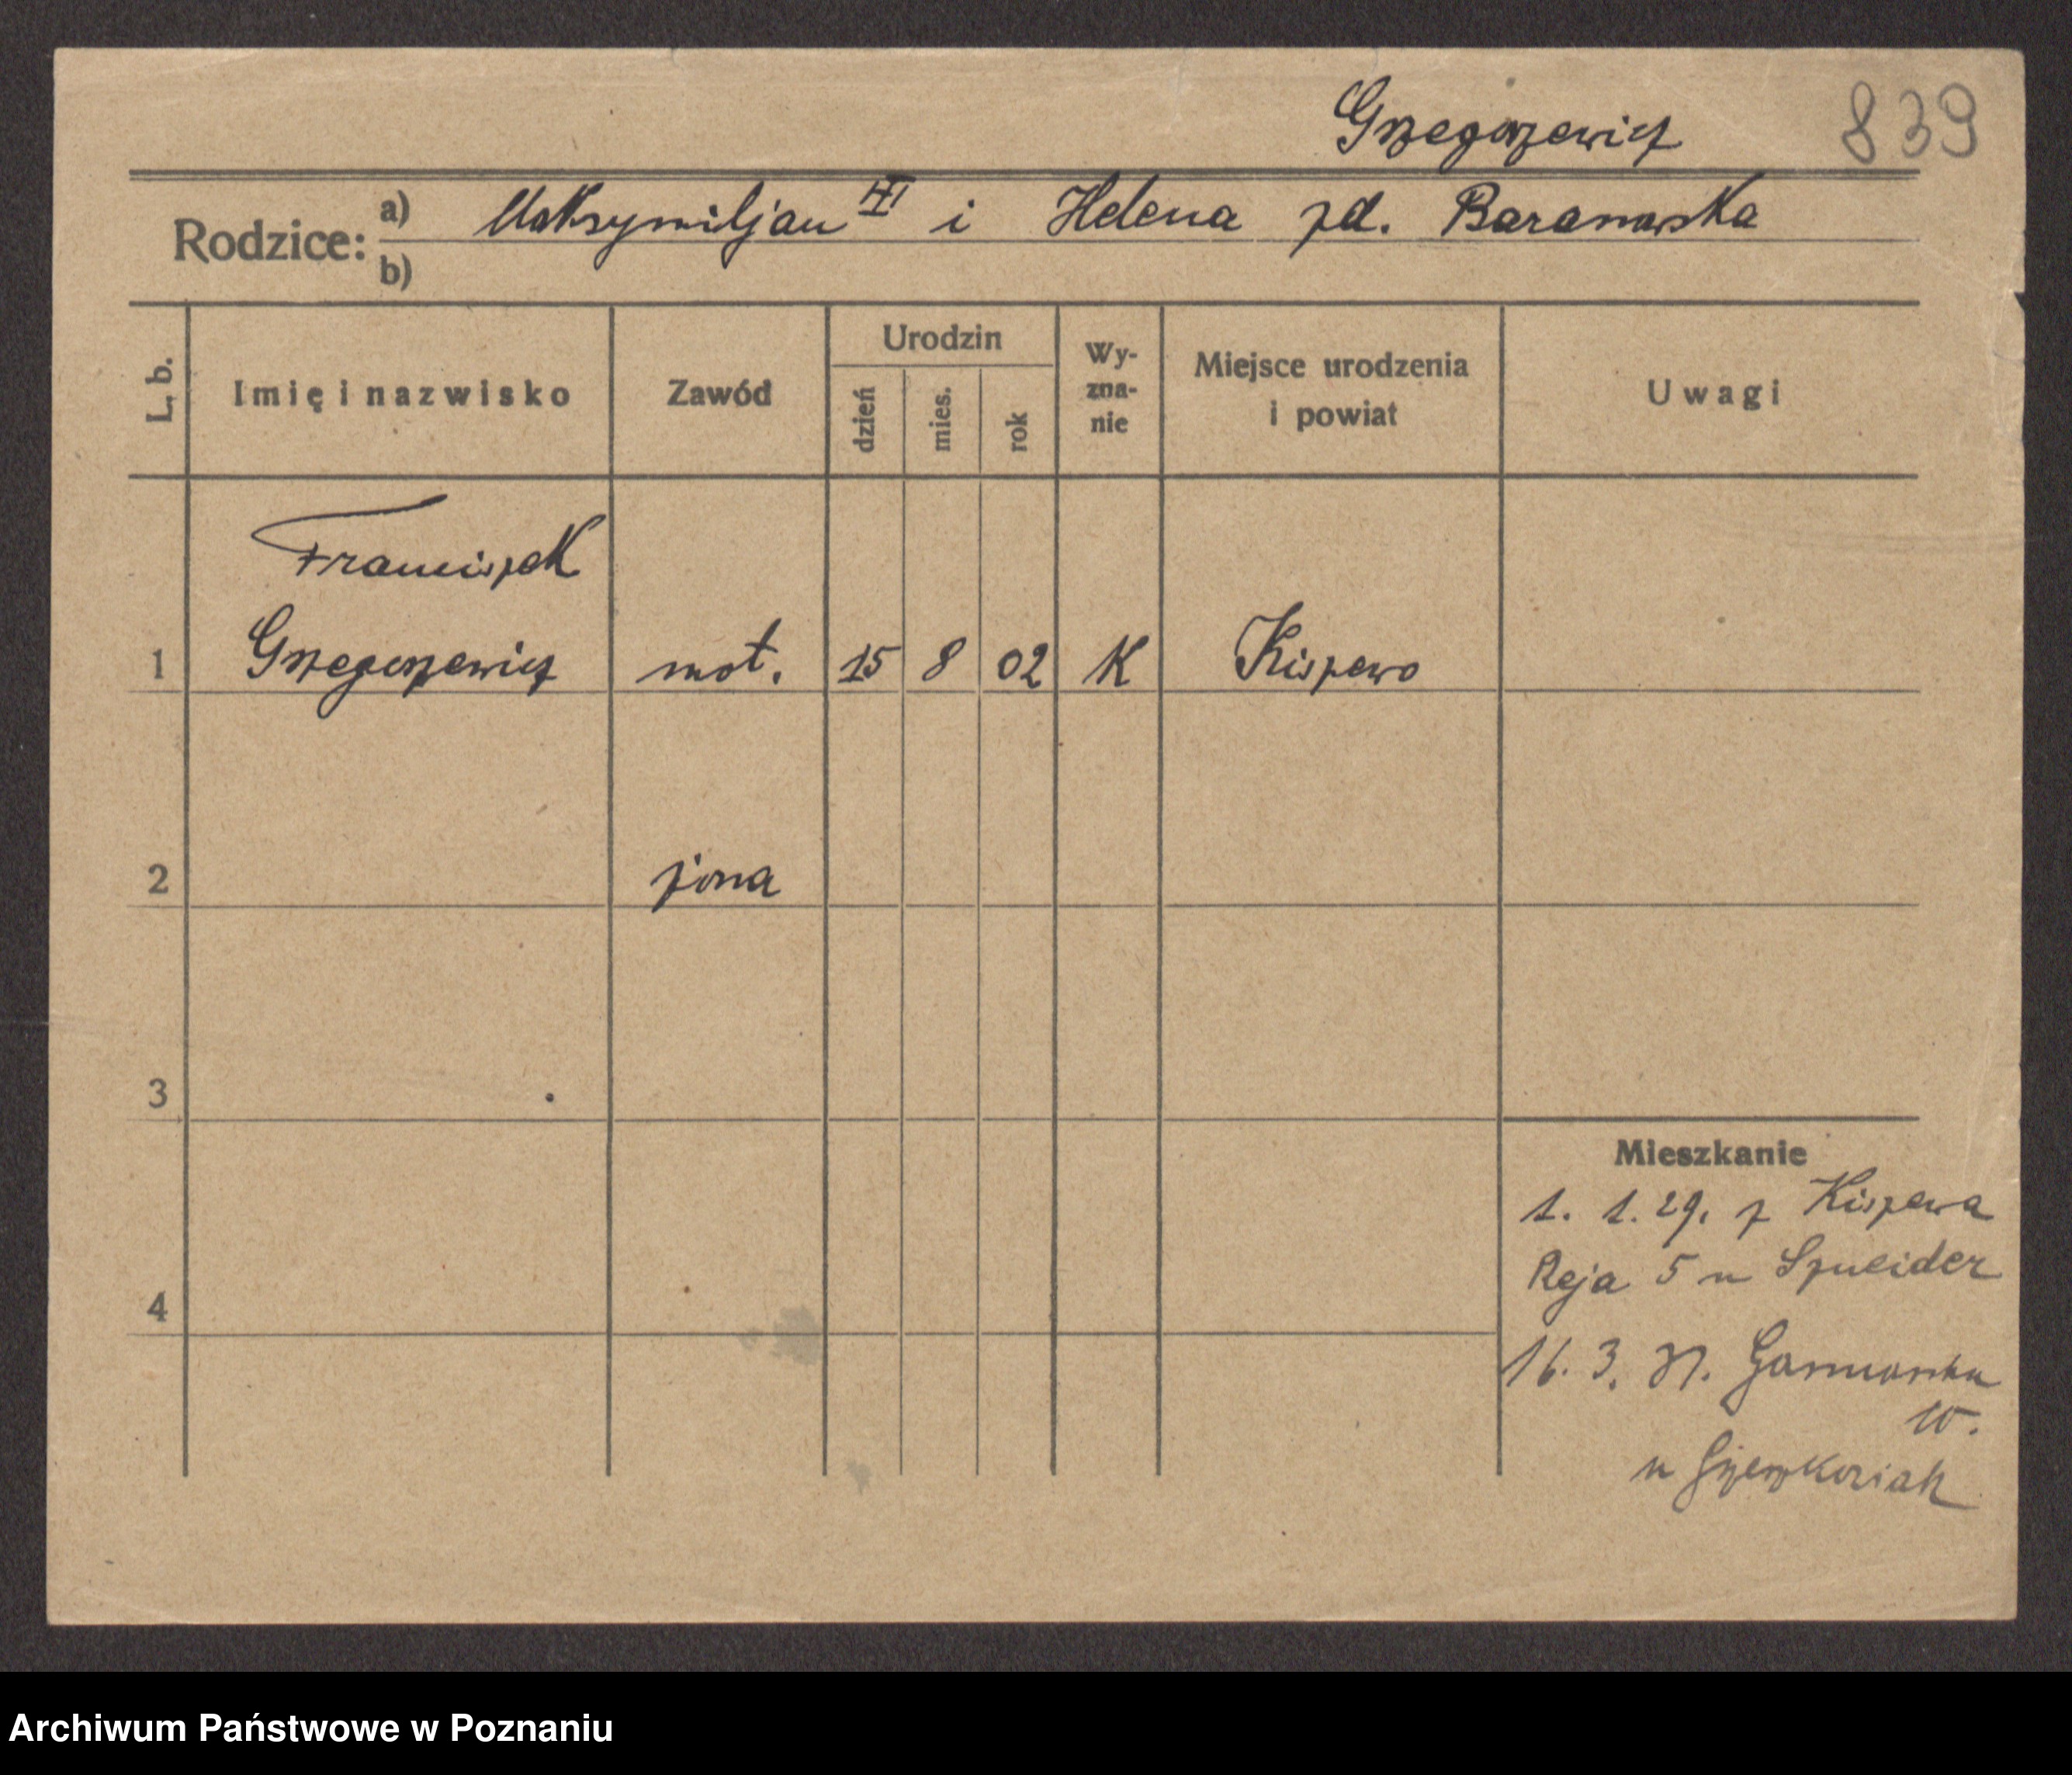 Grzegorzewicz 839
Rodzice: a) Maksymiljan i Helena zd. Baranowska
b)
L. b. Imię i nazwisko Zawód Urodzin dzień mies. rok Wyznanie Miejsce urodzenia i powiat Uwagi
Franciszek
1 Grzegorzewicz mot. 15 8 02 K Kiszewo
2 żona
3
4
Mieszkanie
1. 1. 29. z Kiszewa
Reja 5 u Szneider
16. 3. 31.
10.
u
Archiwum Państwowe w Poznaniu